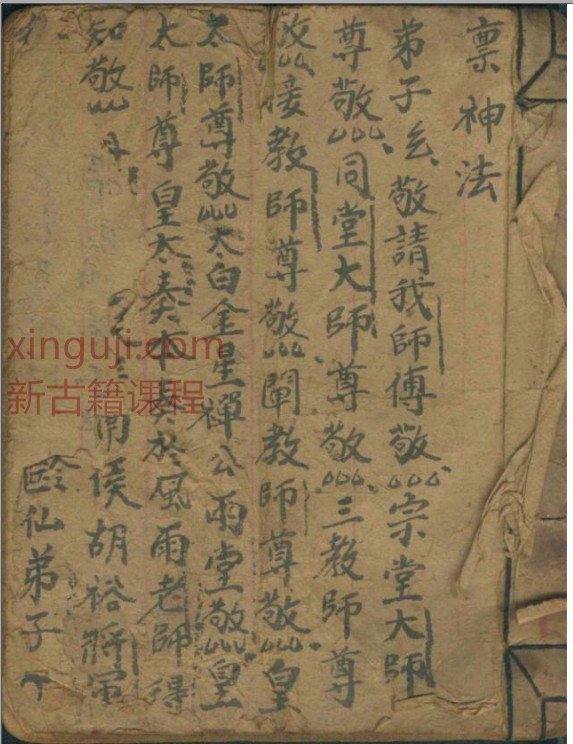 禀神法
弟子 敬請我師傅敬 宗堂大師
尊敬 同堂大師尊敬 三教師尊
敬 接教師尊敬 闡教師尊敬 皇
太師尊敬 太白金星禅公雨堂敬 皇
太師尊皇太奏本奏於風雨老師得
知敬
侯胡裕將軍
仙弟子
xinguji.com
新古籍课程